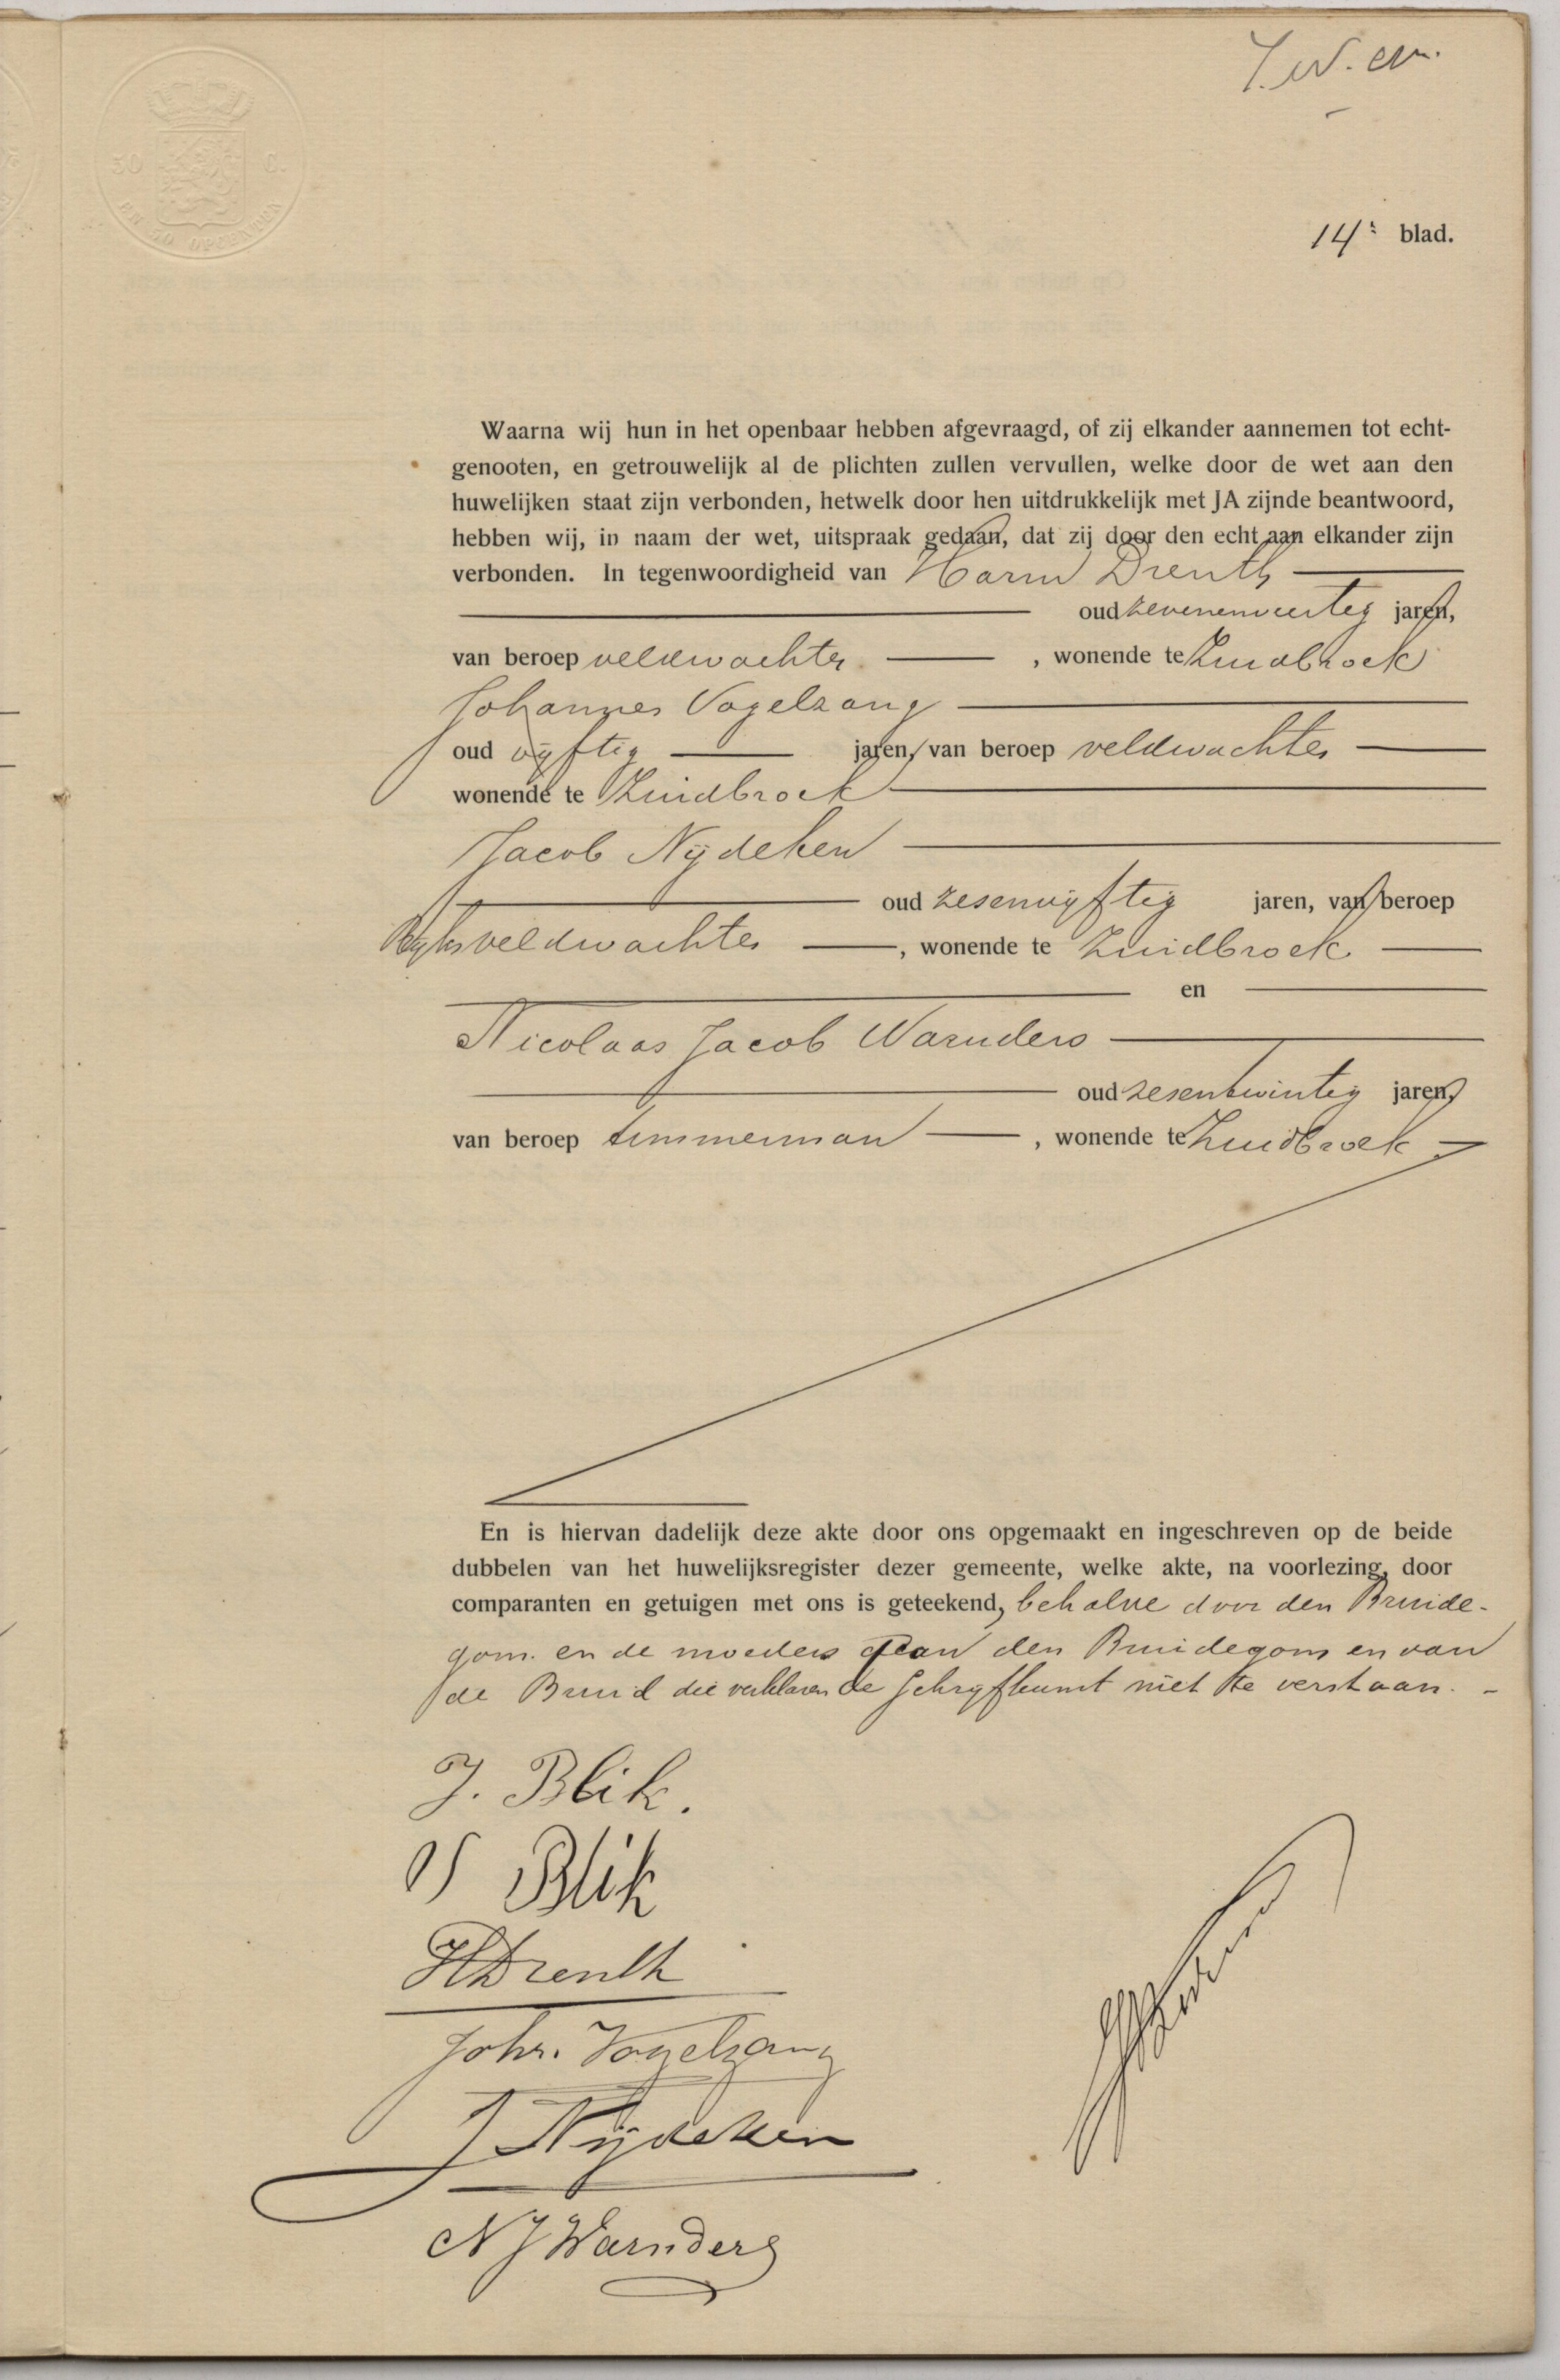 30 C.
EN 50 OPCENTEN
14e blad.
Waarna wij hun in het openbaar hebben afgevraagd, of zij elkander aannemen tot echt-
genooten, en getrouwelijk al de plichten zullen vervullen, welke door de wet aan den
huwelijken staat zijn verbonden, hetwelk door hen uitdrukkelijk met JA zijnde beantwoord,
hebben wij, in naam der wet, uitspraak gedaan, dat zij door den echt aan elkander zijn
verbonden. In tegenwoordigheid van Harm Drenth
oud zevenenveertig jaren,
van beroep veldwachter, wonende te Zuidbroek
Johannes Vogelzang
oud vijftig jaren, van beroep veldwachter
wonende te Zuidbroek
Jacob Nijdeken
oud zesenvijftig jaren, van beroep
Rijksveldwachter, wonende te Zuidbroek
en
Nicolaas Jacob Warnders
oud zesentwintig jaren,
van beroep timmerman, wonende te Zuidbroek
En is hiervan dadelijk deze akte door ons opgemaakt en ingeschreven op de beide
dubbelen van het huwelijksregister dezer gemeente, welke akte, na voorlezing, door
comparanten en getuigen met ons is geteekend, behalve door den Bruide-
gom en de moeders van den Bruidegom en van
de Bruid die verklaren de schrijfkunst niet te verstaan.
J. Blik.
Blik
H Drenth
Johs. Vogelzang
J Nijdeken
N J Warnders